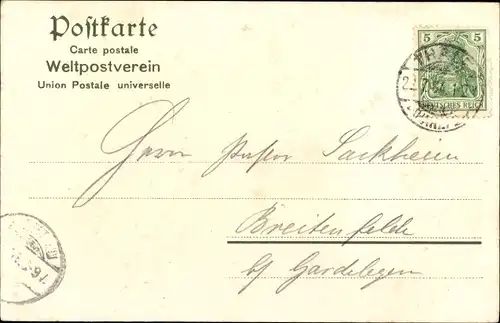 Postkarte
Carte postale
Weltpostverein
Union Postale universelle
5 5
DEUTSCHES REICH
Herrn Pastor Sackheim
Breitenfelde
bei Gardelegen